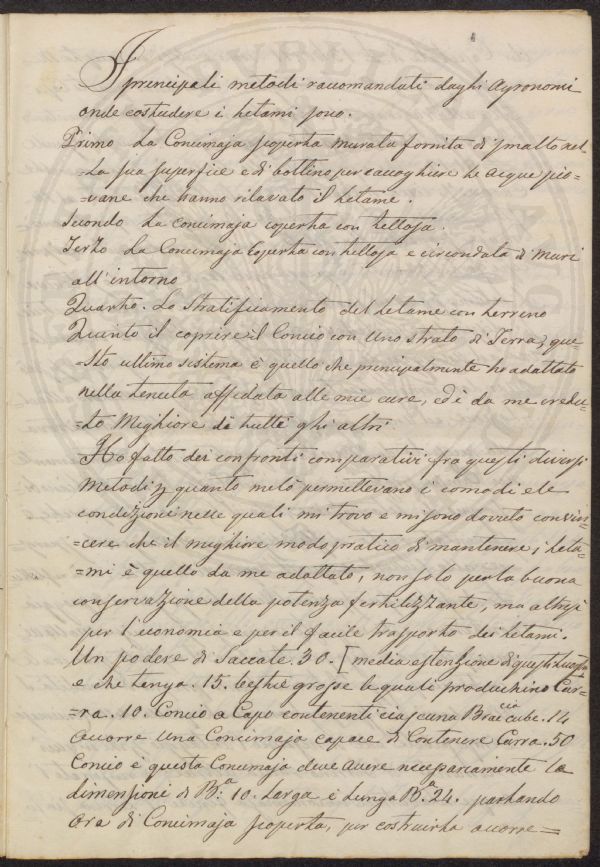 I principali metodi raccomandati daghi Agronomi
onde costudere i letami sono.
Primo La Concimaja scoperta murata fornita di smalto nel-
-la sua superfice e di bottino per raccoghiere Le acque pio-
-vane che hanno rilavato il letame.
Secondo La concimaja coperta con tettoja.
Terzo La Concimaja Coperta con tettoja e circondata di Muri
all'intorno
Quarto. Lo Stratificamento del letame con terreno
Quinto il coprire il Concio con uno strato di Terra, que
-sto ultimo sistema è quello che principalmente ho adattato
nella tenuta affidata alle mie cure, ed è da me credu-
-to Meghiore di tutti ghi altri.
Ho fatto dei confronti comparativi fra questi diversi
Metodi p quanto me lo permettevano i comodi e le
condizioni nelle quali mi trovo e mi sono dovuto convin-
-cere che il meghiore modo pratico di mantenere i leta-
-mi è quello da me adattato, non solo per la buona
conservazione della potenza fertilizzante, ma altresi
per l'economia e per il facile trasporto dei letami.
Un podere di Saccate. 30. [media estenzione di questi
e che tenga. 15. bestie grosse le quali produchino Car-
-ra. 10. Concio a Capo contenenti ciascuna Braccia cube. 14
Occorre una Concimaja capace di Contenere Carra. 50
Concio è questa Concimaja deve avere necessariamente la
dimensioni di B.a 10. Larga e Lunga B.a 24. parlando
Ora di Concimaja scoperta, per costruirla occorre=